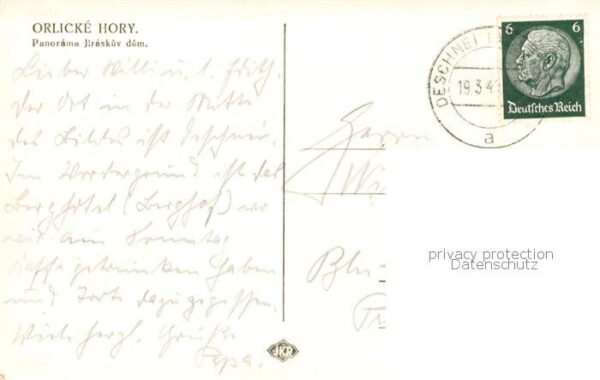 ORLICKÉ HORY.
Panoráma Jiráskův dům.
Lieber Willi u. l. Edith.
Der Ort in der Mitte
des Bildes ist Deschnei.
Im Vordergrund ist das
Berghotel (Berghof) wo
wir am Sonntag
Kaffe getrunken haben
und Torte dazu gegessen.
Viele herzl. Grüße
Papa.
JKR
DESCHNEI
19.3.4
a
6 6
Deutsches Reich
Herrn
Wi
privacy protection
Datenschutz